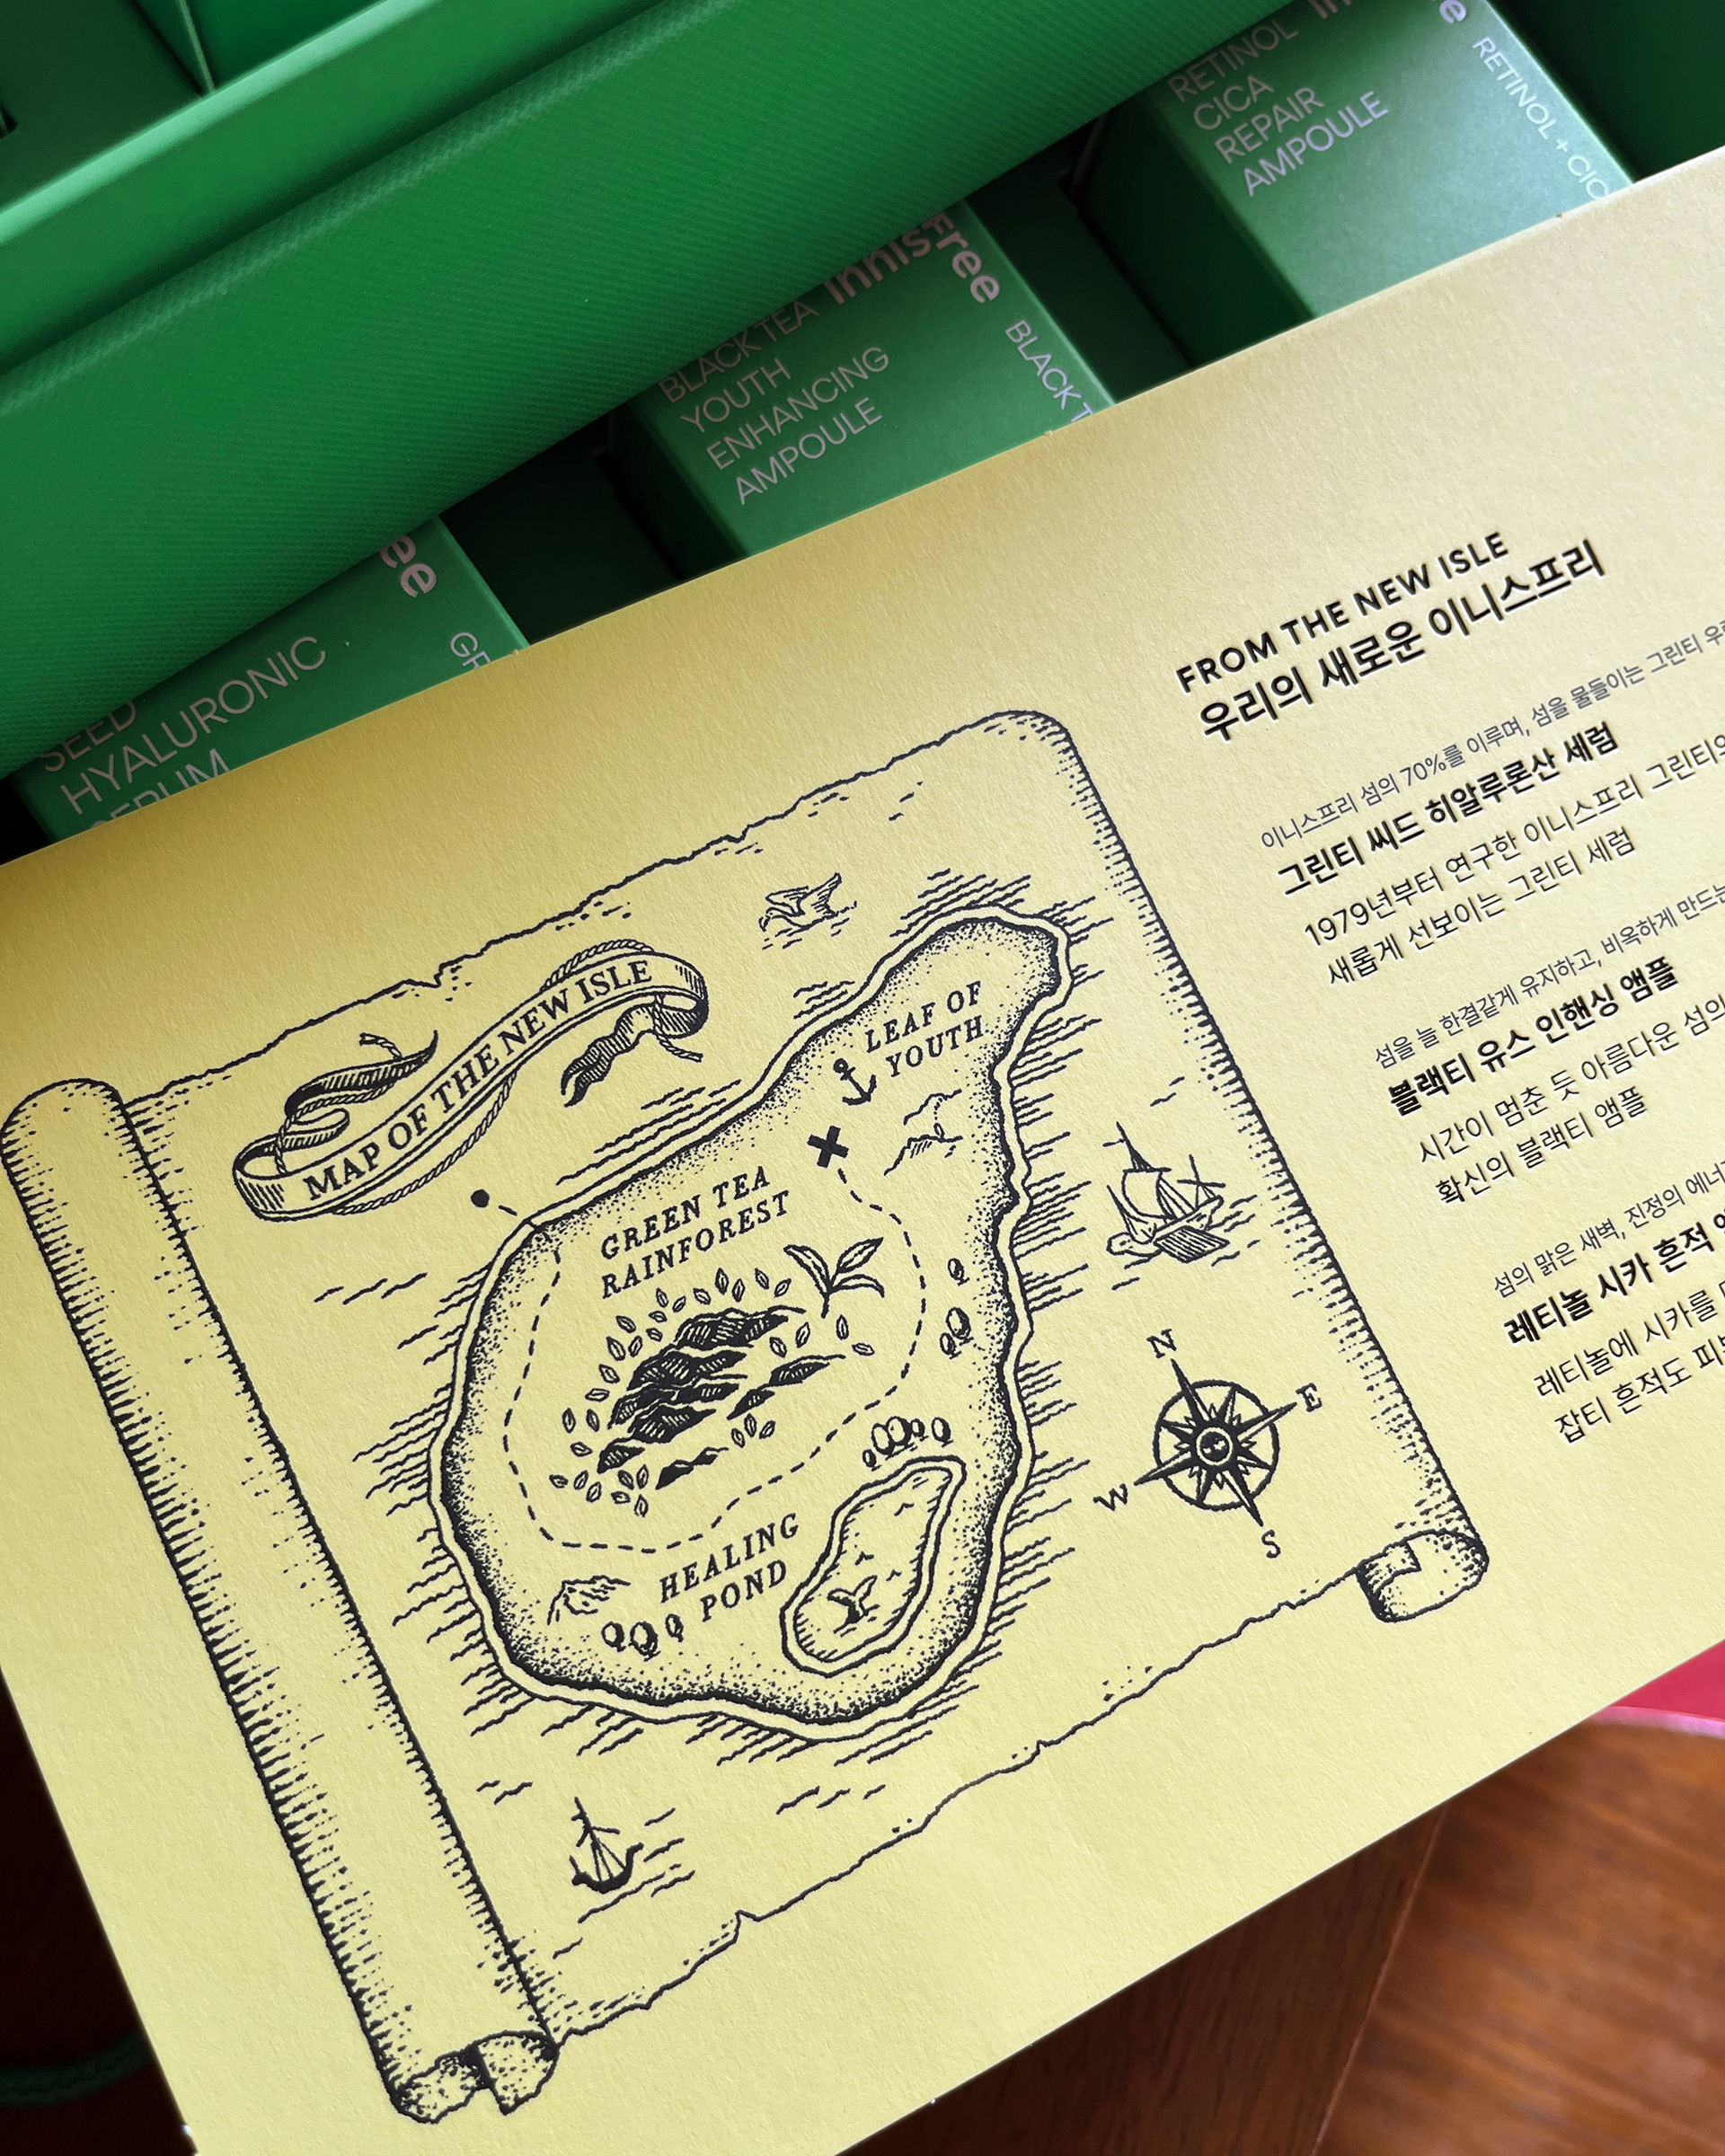 RETINOL
CICA
REPAIR
AMPOULE
RETINOL + CIC
BLACK TEA
YOUTH
ENHANCING
AMPOULE
innisfree
BLACK T
ee
SEED
HYALURONIC
SERUM
FROM THE NEW ISLE
우리의 새로운 이니스프리
이니스프리 섬의 70%를 이루며, 섬을 물들이는 그린티
그린티 씨드 히알루론산 세럼
1979년부터 연구한 이니스프리 그린티의
새롭게 선보이는 그린티 세럼
섬을 늘 한결같게 유지하고, 비옥하게 만드는
블랙티 유스 인핸싱 앰플
시간이 멈춘 듯 아름다운 섬의
확신의 블랙티 앰플
섬의 맑은 새벽, 진정의 에너
레티놀 시카 흔적
레티놀에 시카를
잡티 흔적도
MAP OF THE NEW ISLE
LEAF OF
YOUTH
GREEN TEA
RAINFOREST
HEALING
POND
N
E
W
S